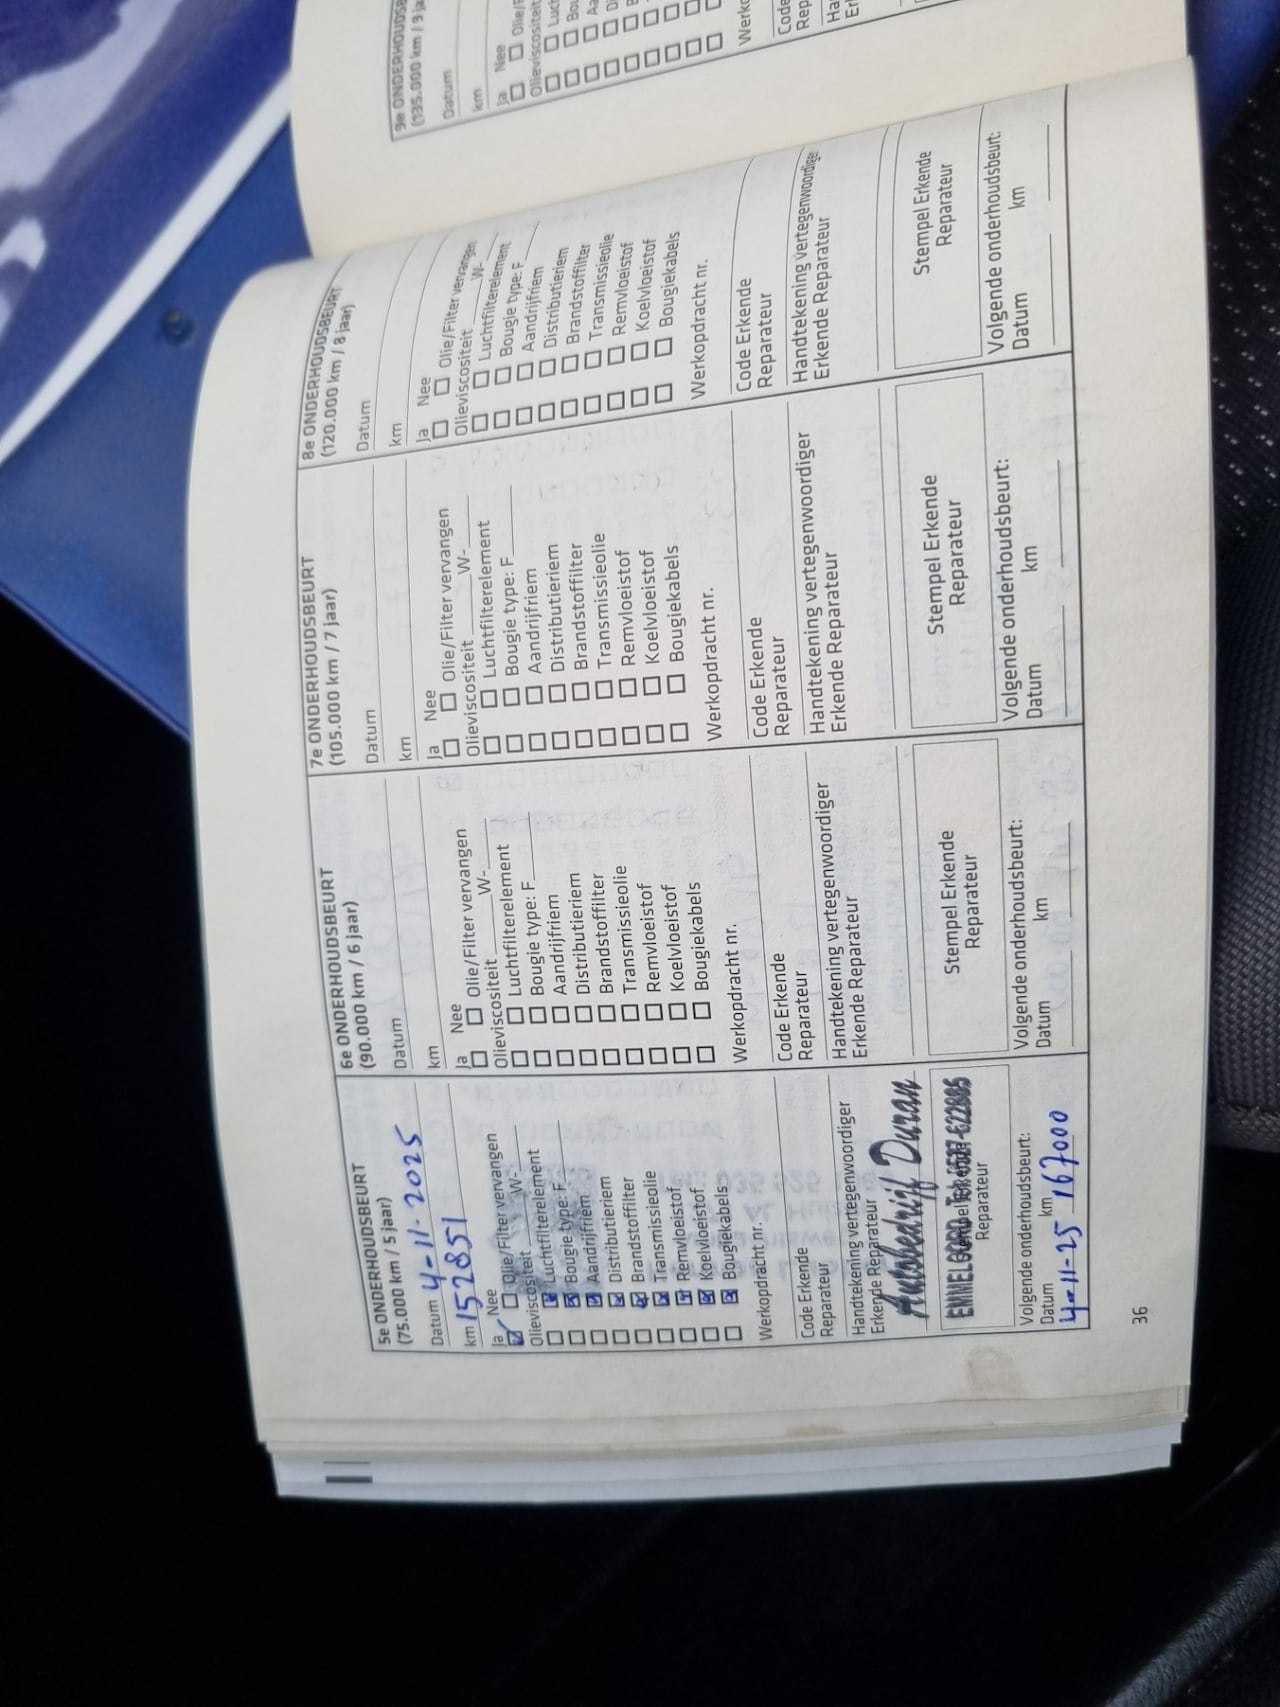 5e ONDERHOUDSBEURT
(75.000 km / 5 jaar)
Datum 4-11-2025
km 152851
Ja Nee
Olie/Filter vervangen
Olieviscositeit W-
Luchtfilterelement
Bougie type: F
Aandrijfriem
Distributieriem
Brandstoffilter
Transmissieolie
Remvloeistof
Koelvloeistof
Bougiekabels
Werkopdracht nr.
Code Erkende
Reparateur
Handtekening vertegenwoordiger
Erkende Reparateur
Autobedrijf Duran
EMMELOORD
Reparateur
Volgende onderhoudsbeurt:
Datum km
4-11-25 167000
6e ONDERHOUDSBEURT
(90.000 km / 6 jaar)
Datum
km
Ja Nee
Olie/Filter vervangen
Olieviscositeit W-
Luchtfilterelement
Bougie type: F
Aandrijfriem
Distributieriem
Brandstoffilter
Transmissieolie
Remvloeistof
Koelvloeistof
Bougiekabels
Werkopdracht nr.
Code Erkende
Reparateur
Handtekening vertegenwoordiger
Erkende Reparateur
Stempel Erkende
Reparateur
Volgende onderhoudsbeurt:
Datum km
7e ONDERHOUDSBEURT
(105.000 km / 7 jaar)
Datum
km
Ja Nee
Olie/Filter vervangen
Olieviscositeit W-
Luchtfilterelement
Bougie type: F
Aandrijfriem
Distributieriem
Brandstoffilter
Transmissieolie
Remvloeistof
Koelvloeistof
Bougiekabels
Werkopdracht nr.
Code Erkende
Reparateur
Handtekening vertegenwoordiger
Erkende Reparateur
Stempel Erkende
Reparateur
Volgende onderhoudsbeurt:
Datum km
8e ONDERHOUDSBEURT
(120.000 km / 8 jaar)
Datum
km
Ja Nee
Olie/Filter vervangen
Olieviscositeit W-
Luchtfilterelement
Bougie type: F
Aandrijfriem
Distributieriem
Brandstoffilter
Transmissieolie
Remvloeistof
Koelvloeistof
Bougiekabels
Werkopdracht nr.
Code Erkende
Reparateur
Handtekening vertegenwoordiger
Erkende Reparateur
Stempel Erkende
Reparateur
Volgende onderhoudsbeurt:
Datum km
36
9e ONDERHOUDSB
(135.000 km / 9 ja
Datum
km
Ja Nee
Olie/F
Olieviscositeit
Luch
Bou
Aa
Werko
Code
Rep